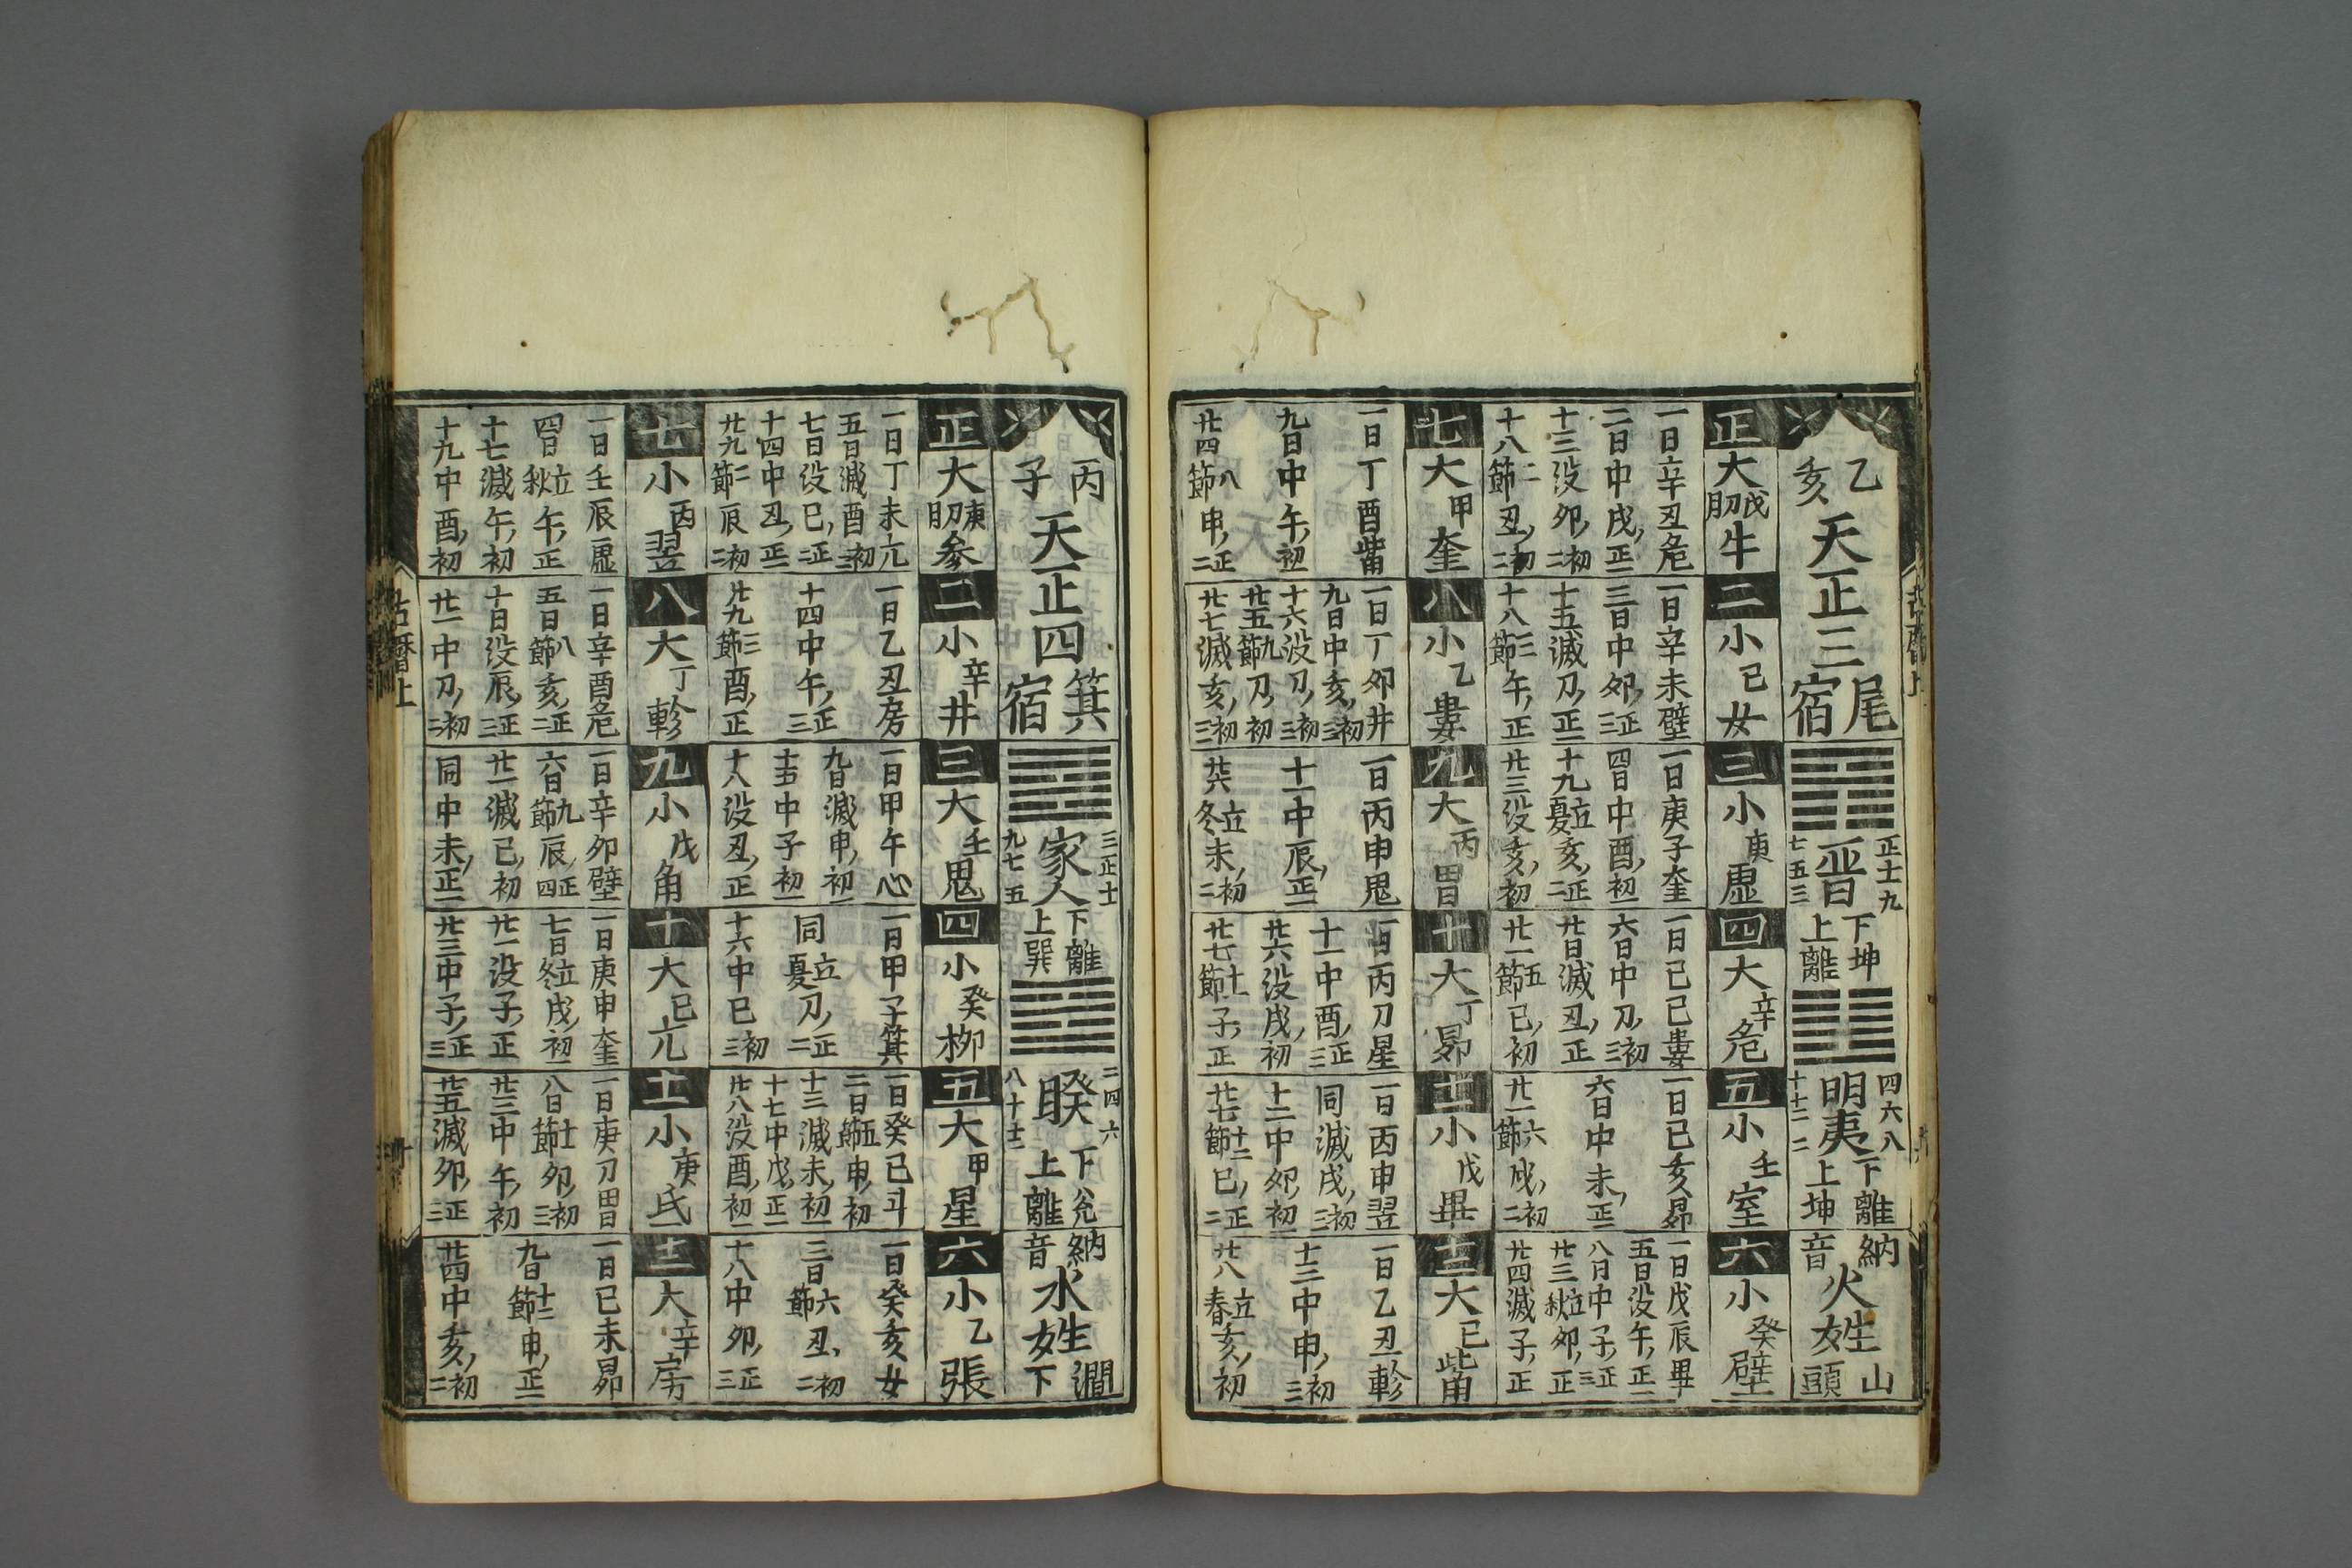 乙亥
天正三
尾宿
晋
正十一九
七五三
下坤
上離
明夷
四六八
十十二二
下離
上坤
納音
火姓
山頭
正
大
戊朔
牛
一日辛丑危
二日中戌正二
十三没卯初二
十八二節丑初二
二
小
己
女
一日辛未壁
三日中卯正三
十五滅刀正二
十八三節午正
三
小
庚
虚
一日庚子奎
四日中酉初一
十九立夏亥正二
廿三没亥初
四
大
辛
危
一日己巳婁
六日中刀初三
廿日滅丑正
廿一五節巳初
五
小
壬
室
一日己亥昴
六日中未正二
廿一六節戌初二
六
小
癸
壁
一日戊辰畢
五日没午正二
八日中子正三
廿三立秋卯正
廿四滅子正
七
大
甲
奎
一日丁酉觜
九日中午初
廿四八節申正二
八
小
乙
婁
一日丁卯井
九日中亥初三
十六没刀初三
廿五九節刀初
廿七滅亥初三
九
大
丙
胃
一日丙申鬼
十一中辰正二
廿六立冬未初二
十
大
丁
昴
一日丙刀星
十一中酉正三
廿六没戌初
廿七十一節子正
十一
小
戊
畢
一日丙申翌
同滅戌初三
十二中卯初一
廿七十二節巳正二
十二
大
己
觜
一日乙丑軫
十三中申初三
廿八立春亥初
古暦上
丙子
天正四
箕宿
家人
三正十一
九七五
下離
上巽
睽
二四六
八十十二
下兌
上離
納音
水姓
澗下
正
大
庚朔
参
一日丁未亢
五日滅酉初三
七日没巳正二
十四中丑正二
廿九二節辰初二
二
小
辛
井
一日乙丑房
十四中午正三
廿九三節酉正
三
大
壬
鬼
一日甲午心
九日滅申初一
十五中子初一
十八没丑正
四
小
癸
柳
一日甲子箕
同立夏刀正二
十六中巳初三
五
大
甲
星
一日癸巳斗
二日五節申初
十三滅未初一
十七中戌正二
廿八没酉初一
六
小
乙
張
一日癸亥女
三日六節丑初二
十八中卯正三
七
小
丙
翌
一日壬辰虚
四日立秋午正
十七滅午初
十九中酉初
八
大
丁
軫
一日辛酉危
五日八節亥正二
十日没辰正三
廿一中刀初二
九
小
戊
角
一日辛卯壁
六日九節辰正四
廿一滅巳初
同中未正二
十
大
己
亢
一日庚申奎
七日立冬戌初一
廿一没子正
廿三中子正三
十一
小
庚
氐
一日庚刀胃
八日十一節卯初三
廿三中午初
廿五滅卯正三
十二
大
辛
房
一日己未昴
九日十二節申正二
廿四中亥初二
古暦上